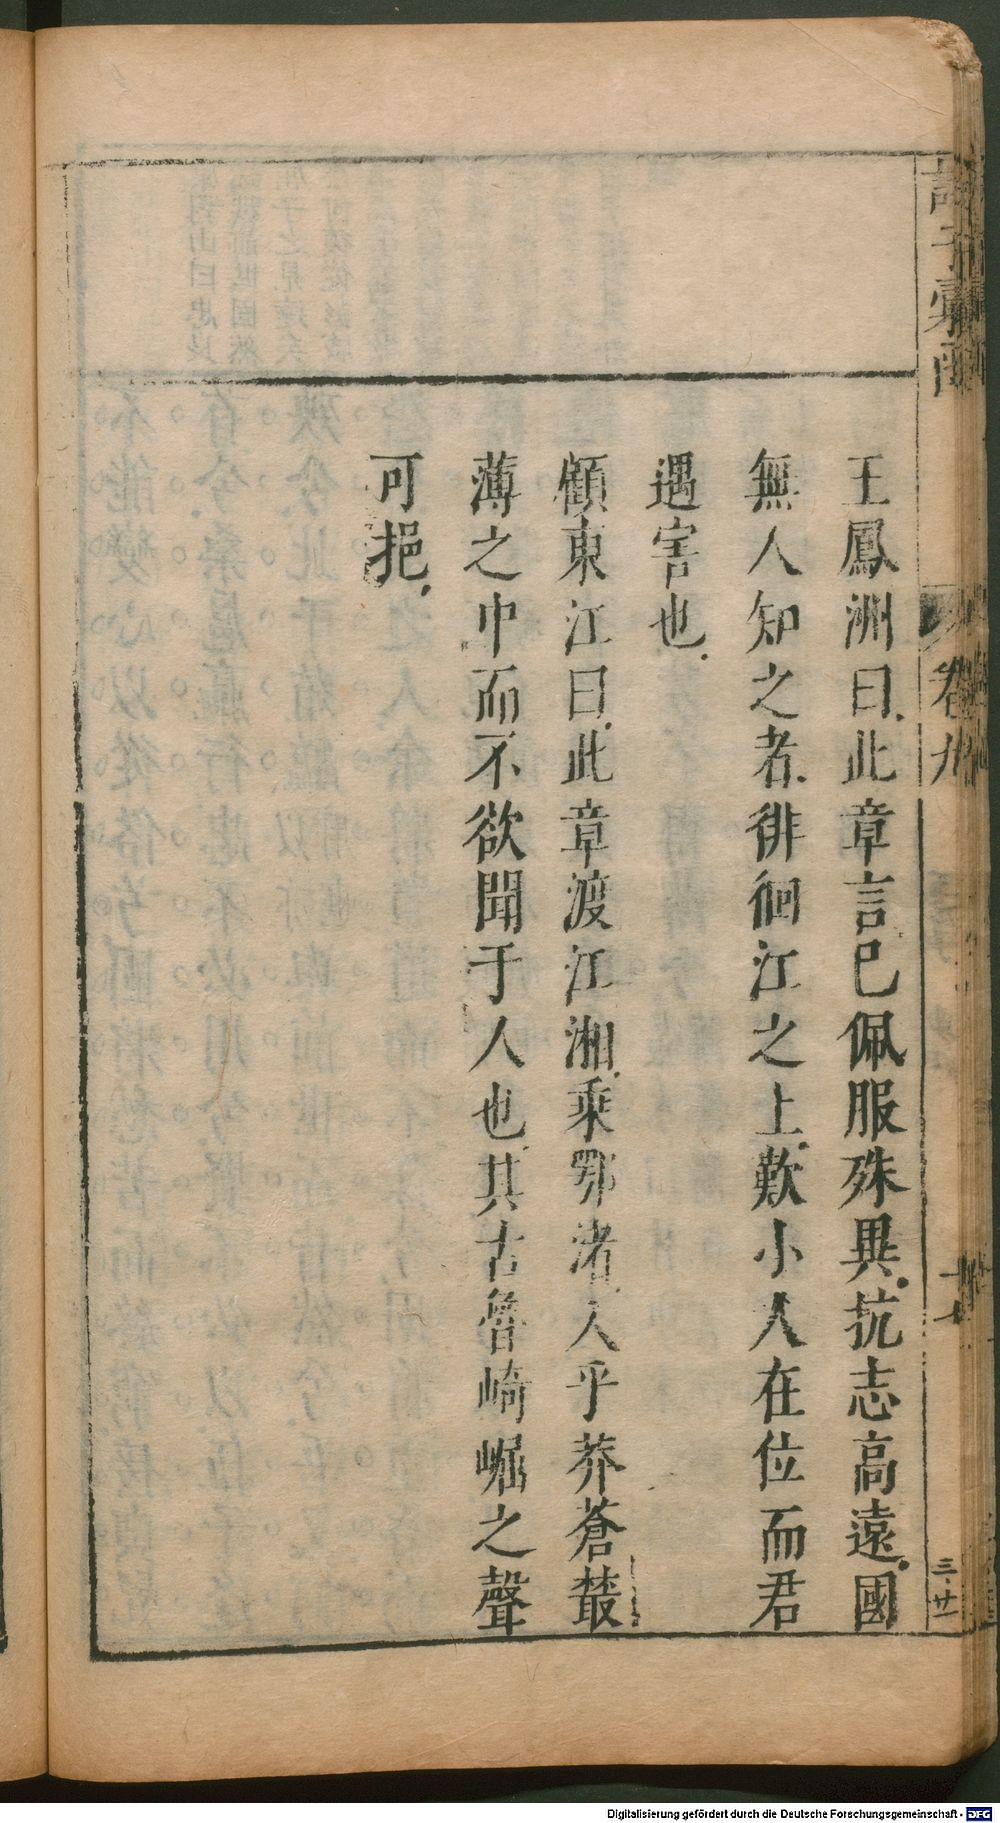 諸子彙函
卷九
十七
三廿
王鳳洲曰.此章言已佩服殊異.抗志高遠.國
無人知之者.徘徊江之上.歎小人在位而君
遇害也.
顧東江曰.此章渡江湘.乘鄂渚.入乎莽蒼叢
薄之中而不欲聞于人也.其古詹崎崛之聲
可挹.
Digitalisierung gefördert durch die Deutsche Forschungsgemeinschaft - DFG